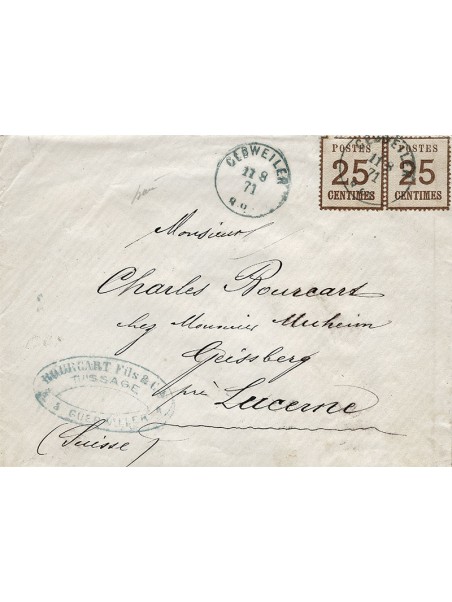 GEBWEILER
11 8
71
POSTES
25
CENTIMES
POSTES
25
CENTIMES
GEBWEILER
11 8
71
Monsieur
Charles Bourcart
chez Monsieur
Geissberg
près Lucerne
(Suisse)
BOURCART Fils & Cie
TISSAGE
à GUEBWILLER